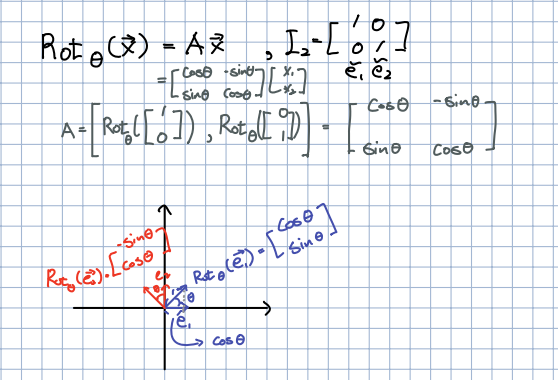 Rotθ(x⃗) = Ax⃗ , I₂ = [1 0; 0 1]
e⃗₁ e⃗₂
= [cosθ -sinθ; sinθ cosθ] [x₁; x₂]
A = [Rotθ([1; 0]) , Rotθ([0; 1])] = [cosθ -sinθ; sinθ cosθ]
Rotθ(e⃗₂) = [-sinθ; cosθ]
Rotθ(e⃗₁) = [cosθ; sinθ]
e₂
θ
θ
e⃗₁
cosθ